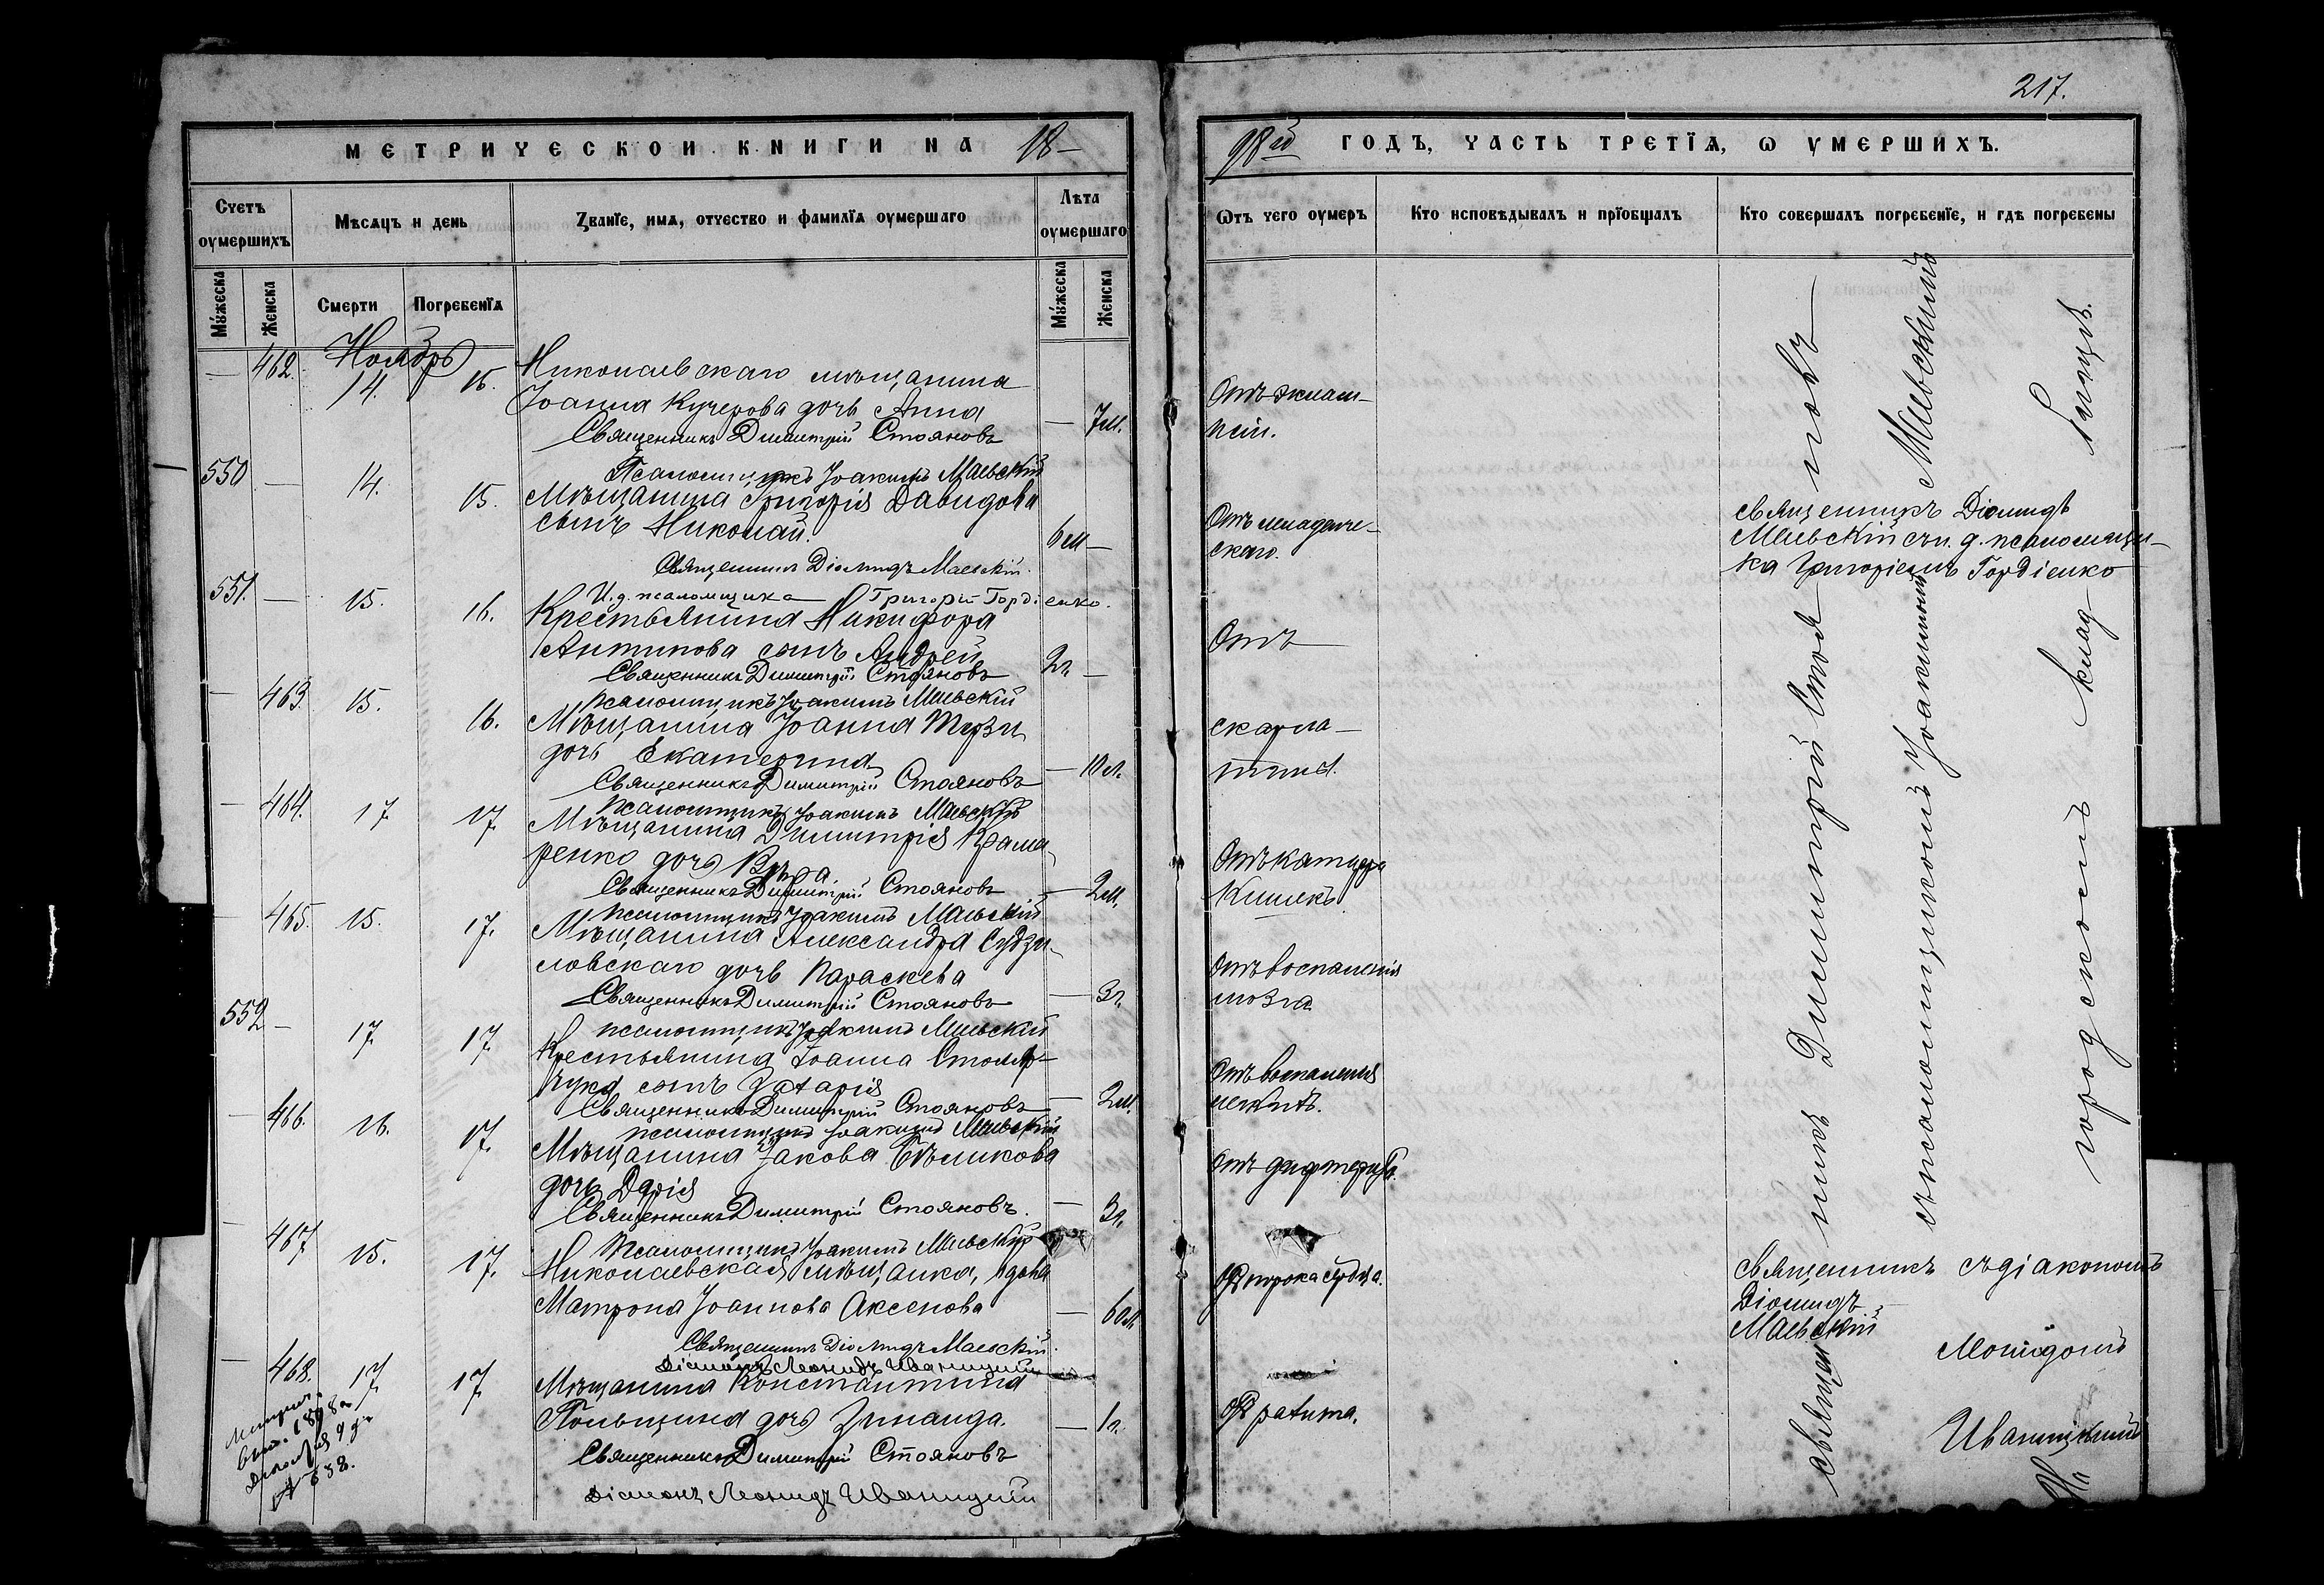 217.
МЕТРИЧЕСКОЙ КНИГИ НА 18—
98й ГОДЪ, ЧАСТЬ ТРЕТІѦ, Ѡ УМЕРШИХЪ.
Счетъ оумершихъ
Мѣсѧцъ и день
Званїе, имѧ, отчество и фамилїѧ оумершаго
Лѣта оумершаго
Мужеска
Женска
Смерти
Погребенїѧ
Мужеска
Женска
Ѿтъ чего оумеръ
Кто исповѣдывалъ и прїобщалъ
Кто совершалъ погребенїе, и гдѣ погребены
Ноябрь
— 462. 14. 15. Николаевскаго мѣщанина
Іоанна Кучерова дочь Анна — 7м.
Отъ эклам-
псіи.
Священникъ Димитрій Стояновъ
Псаломщикъ Іоакимъ Маевскій
550 — 14. 15. Мѣщанина Григорія Давидова
сынъ Николай. 6м —
Отъ младенче-
скаго.
Священникъ Діомидъ Маевскій.
И. д. псаломщика Григорій Гордіенко.
Священникъ Діомидъ
Маевскій съ и. д. псаломщи-
ка Григоріемъ Гордіенко
551. — 15. 16. Крестьянина Никифора
Антипова сынъ Андрей 2г. —
Отъ
Священникъ Димитрій Стояновъ
Псаломщикъ Іоакимъ Маевскій
— 463. 15. 16. Мѣщанина Іоанна Терзи
дочь Екатерина — 10л.
скарла-
тины.
Священникъ Димитрій Стояновъ
Псаломщикъ Іоакимъ Маевскій
— 464. 17. 17. Мѣщанина Димитрія Крама-
ренко дочь Вѣра. — 2м.
Отъ катарра
кишекъ.
Священникъ Димитрій Стояновъ
Псаломщикъ Іоакимъ Маевскій
— 465. 15. 17. Мѣщанина Александра Судзи-
ловскаго дочь Параскева — 3г.
Отъ воспаленія
мозга
Священникъ Димитрій Стояновъ
Псаломщикъ Іоакимъ Маевскій
552 — 17. 17. Крестьянина Іоанна Столяр-
чука сынъ Захарія — 2м.
Отъ воспаленія
легкихъ.
Священникъ Димитрій Стояновъ
Псаломщикъ Іоакимъ Маевскій
— 466. 16. 17. Мѣщанина Іакова Бѣликова
дочь Дарія — 3г.
Отъ дифтерита.
Священникъ Димитрій Стояновъ.
Псаломщикъ Іоакимъ Маевскій
— 467. 15. 17. Николаевская мѣщанка, вдова
Матрона Іоаннова Аксенова — 60л
От порока сердца.
Священникъ Діомидъ Маевскій.
Діаконъ Леонидъ Иваницкій
Священникъ съ діакономъ
Діомидъ
Маевскій
Леонидомъ
Иваницкимъ
— 468. 17. 17. Мѣщанина Константина
Польщина дочь Зинаида. — 1г.
От рахита.
Священникъ Димитрій Стояновъ
Діаконъ Леонидъ Иваницкій
1898 г.
9 д.
№ 538.
Священникъ Димитрій Стояновъ
съ псаломщикомъ Іоакимомъ Маевскимъ
городскомъ клад-
бищѣ.